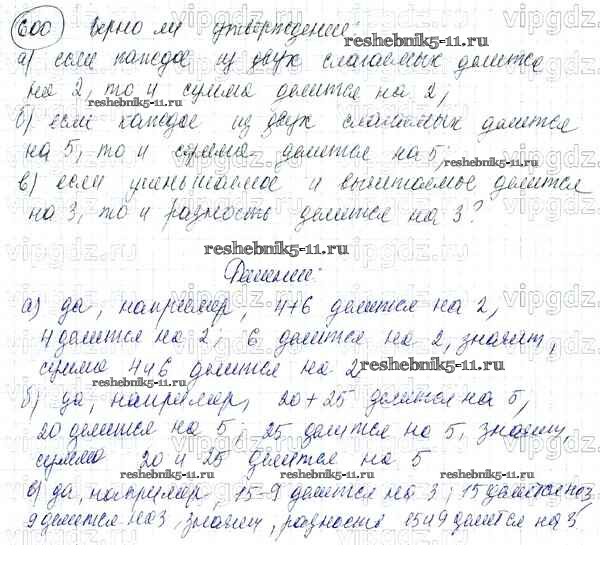 600 Верно ли утверждение:
reshebnik5-11.ru
а) если каждое из двух слагаемых делится
на 2, то и сумма делится на 2,
reshebnik5-11.ru
б) если каждое из двух слагаемых делится
на 5, то и сумма делится на 5,
reshebnik5-11.ru
в) если уменьшаемое и вычитаемое делится
на 3, то и разность делится на 3?
reshebnik5-11.ru
Решение:
а) да, например, 4+6 делится на 2,
4 делится на 2, 6 делится на 2, значит,
сумма 4 и 6 делится на 2
reshebnik5-11.ru
reshebnik5-11.ru
б) да, например, 20+25 делится на 5,
20 делится на 5, 25 делится на 5, значит,
reshebnik5-11.ru
сумма 20 и 25 делится на 5
reshebnik5-11.ru
reshebnik5-11.ru
в) да, например, 15-9 делится на 3, 15 делится на 3,
9 делится на 3, значит, разность 15 и 9 делится на 3
vipgdz